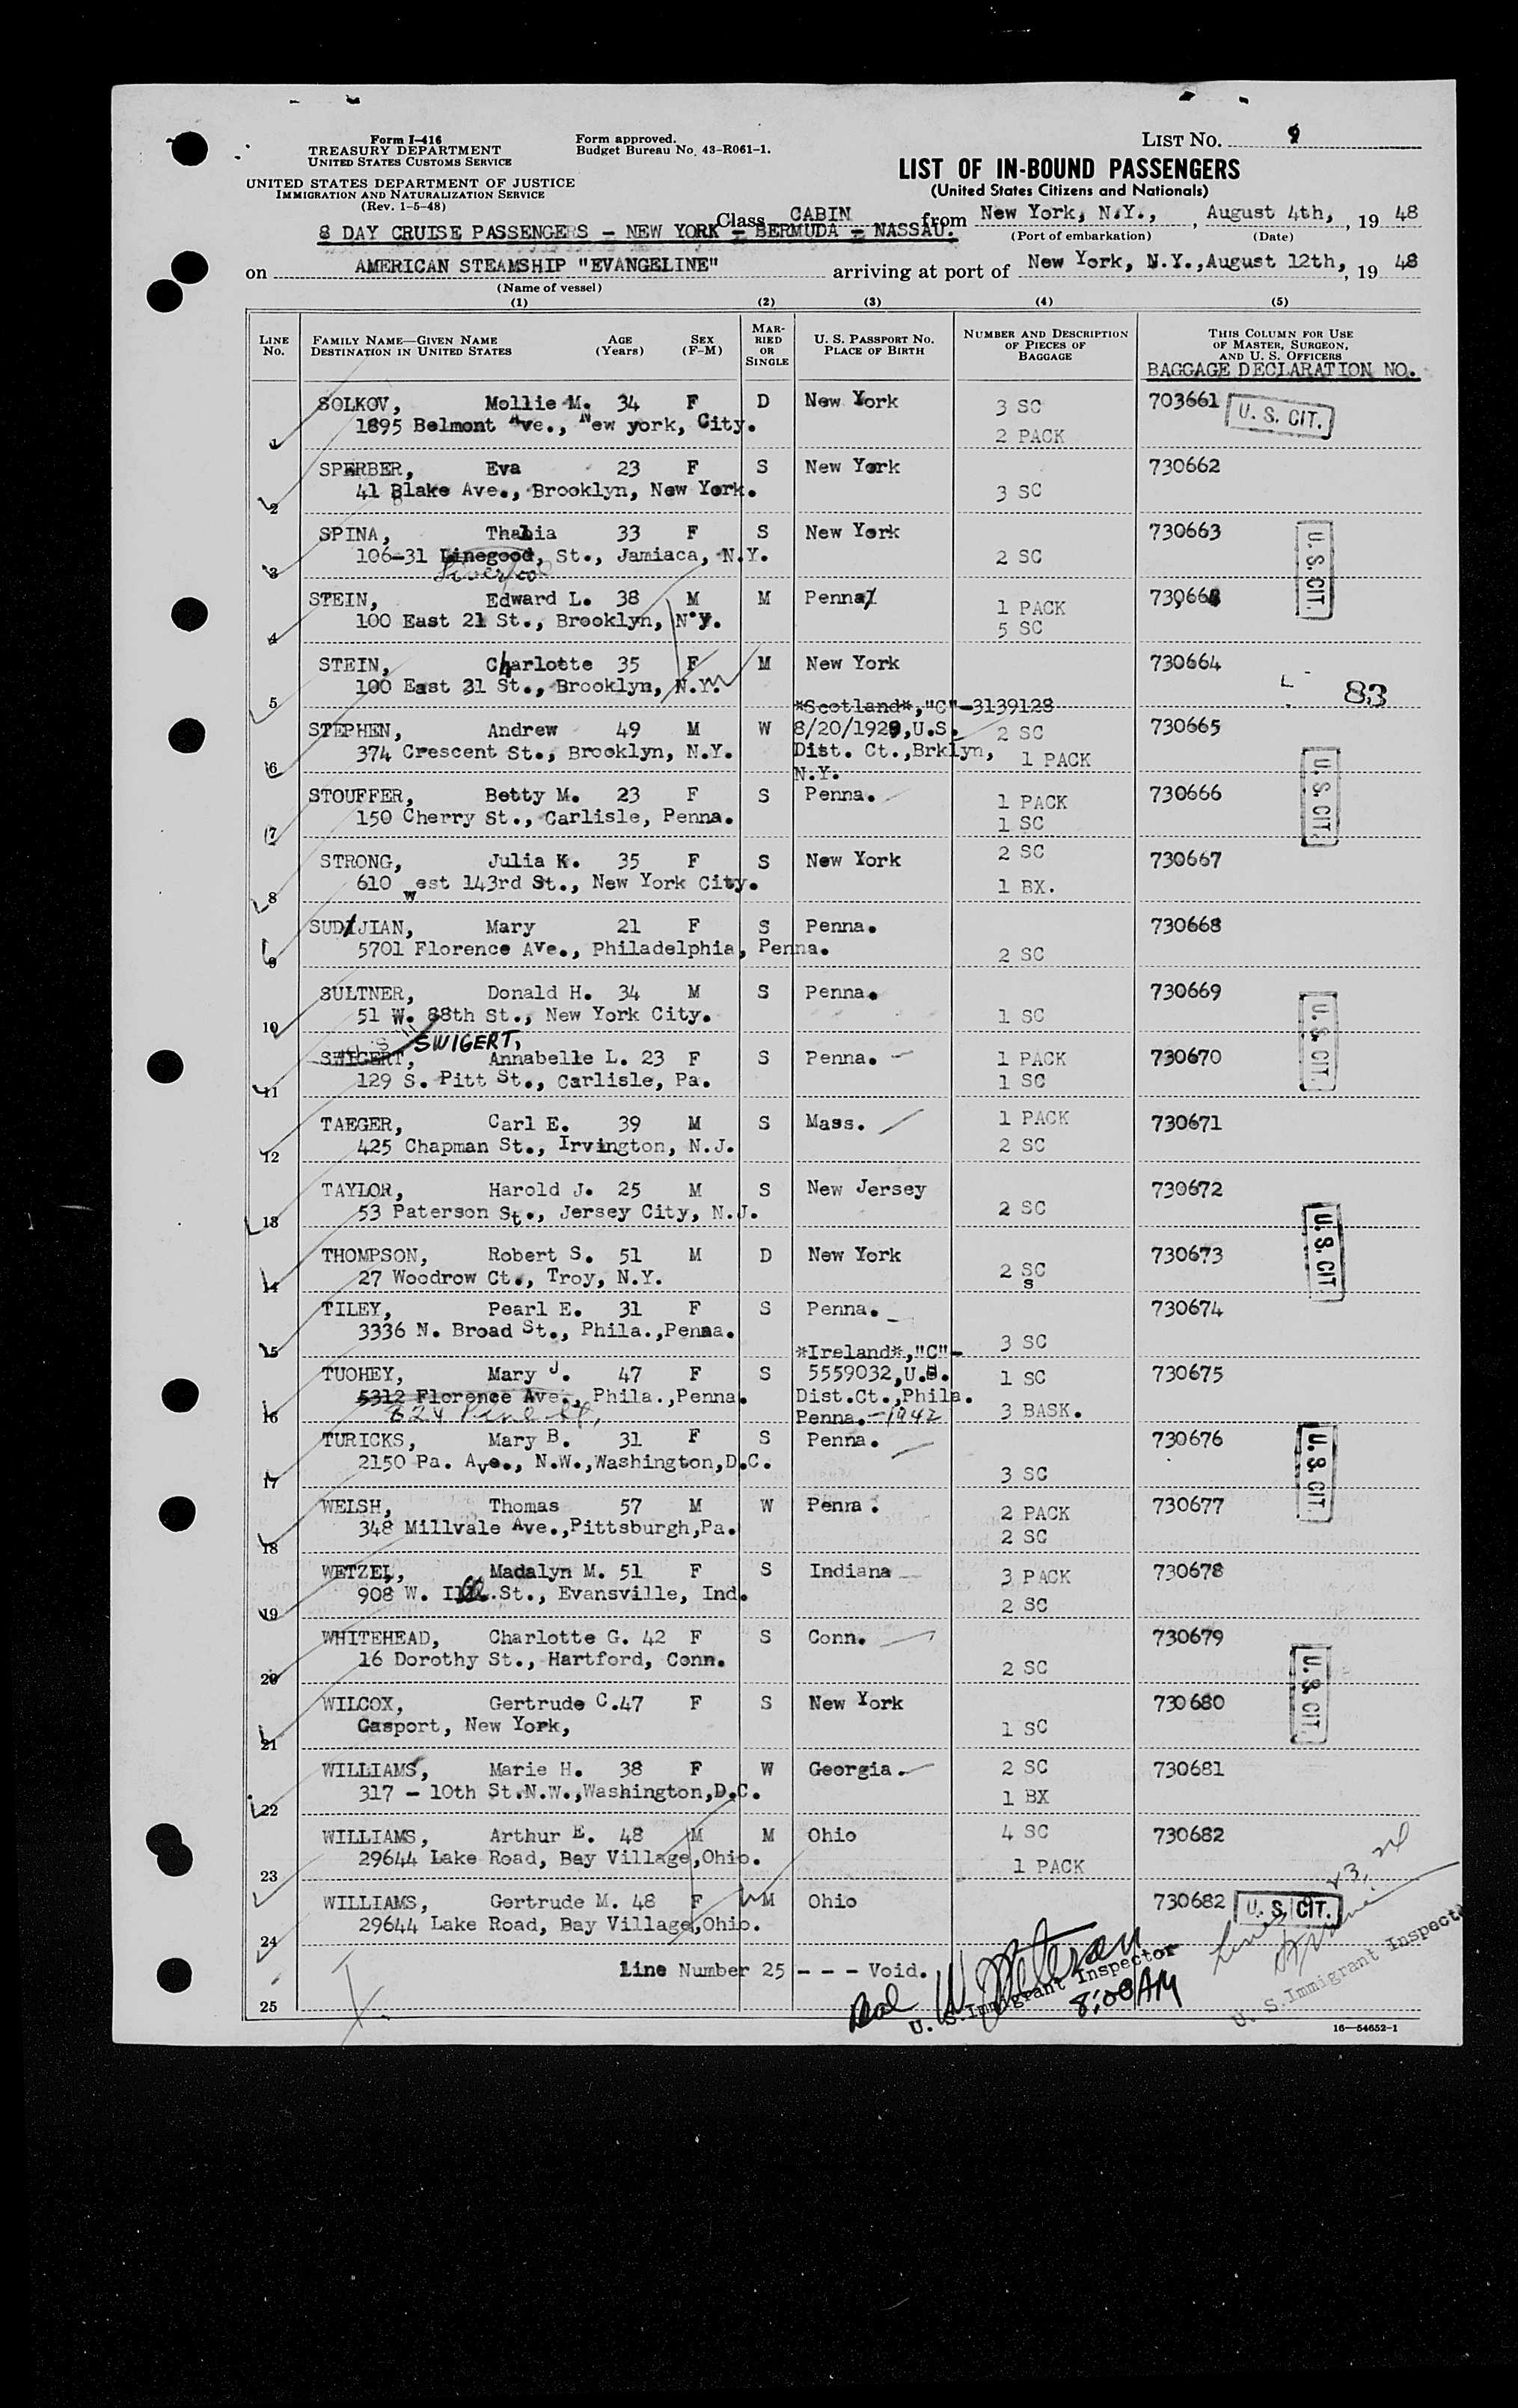 Form I-416
TREASURY DEPARTMENT
UNITED STATES CUSTOMS SERVICE
UNITED STATES DEPARTMENT OF JUSTICE
IMMIGRATION AND NATURALIZATION SERVICE
(Rev. 1-5-48)
Form approved.
Budget Bureau No. 43-R061-1.
LIST No. 9
LIST OF IN-BOUND PASSENGERS
(United States Citizens and Nationals)
Class CABIN from New York, N.Y., August 4th, 1948
(Port of embarkation) (Date)
8 DAY CRUISE PASSENGERS - NEW YORK - BERMUDA - NASSAU.
on AMERICAN STEAMSHIP "EVANGELINE" arriving at port of New York, N.Y., August 12th, 1948
(Name of vessel)
(1) (2) (3) (4) (5)
LINE No. FAMILY NAME—GIVEN NAME DESTINATION IN UNITED STATES AGE (Years) SEX (F-M) MARRIED OR SINGLE U. S. PASSPORT No. PLACE OF BIRTH NUMBER AND DESCRIPTION OF PIECES OF BAGGAGE THIS COLUMN FOR USE OF MASTER, SURGEON, AND U. S. OFFICERS
BAGGAGE DECLARATION NO.
SOLKOV, Mollie M. 34 F D New York 3 SC 703661 U. S. CIT.
1 1895 Belmont Ave., New york, City. 2 PACK
SPERBER, Eva 23 F S New York 730662
2 41 Blake Ave., Brooklyn, New York. 3 SC
SPINA, Thalia 33 F S New York 730663 U. S. CIT.
3 106-31 Linegood, St., Jamiaca, N.Y. 2 SC
Liverpool
STEIN, Edward L. 38 M M Penna 1 PACK 730664
4 100 East 21 St., Brooklyn, N.Y. 5 SC
STEIN, Charlotte 35 F M New York 730664
5 100 East 21 St., Brooklyn, N.Y. 83
*Scotland*,"C"-3139128
STEPHEN, Andrew 49 M W 8/20/1929,U.S. 2 SC 730665
6 374 Crescent St., Brooklyn, N.Y. Dist. Ct.,Brklyn, 1 PACK U. S. CIT.
N.Y.
STOUFFER, Betty M. 23 F S Penna. 1 PACK 730666
7 150 Cherry St., Carlisle, Penna. 1 SC
STRONG, Julia K. 35 F S New York 2 SC 730667
8 610 west 143rd St., New York City. 1 BX.
SUDJIAN, Mary 21 F S Penna. 730668
9 5701 Florence Ave., Philadelphia, Penna. 2 SC
SULTNER, Donald H. 34 M S Penna. 730669
10 51 W. 88th St., New York City. 1 SC U. S. CIT.
SWIGERT,
SWIGERT, Annabelle L. 23 F S Penna. 1 PACK 730670
11 129 S. Pitt St., Carlisle, Pa. 1 SC
TAEGER, Carl E. 39 M S Mass. 1 PACK 730671
12 425 Chapman St., Irvington, N.J. 2 SC
TAYLOR, Harold J. 25 M S New Jersey 730672
13 53 Paterson St., Jersey City, N.J. 2 SC U. S. CIT
THOMPSON, Robert S. 51 M D New York 730673
14 27 Woodrow Ct., Troy, N.Y. 2 SC
s
TILEY, Pearl E. 31 F S Penna. 730674
15 3336 N. Broad St., Phila.,Penna. 3 SC
*Ireland*,"C"-
TUOHEY, Mary J. 47 F S 5559032,U.S. 1 SC 730675
5312 Florence Ave., Phila.,Penna. Dist.Ct.,Phila.
16 824 Pine St, Penna.-1942 3 BASK.
TURICKS, Mary B. 31 F S Penna. 730676 U. S. CIT.
17 2150 Pa. Ave., N.W.,Washington,D.C. 3 SC
WELSH, Thomas 57 M W Penna. 2 PACK 730677
18 348 Millvale Ave.,Pittsburgh,Pa. 2 SC
WETZEL, Madalyn M. 51 F S Indiana 3 PACK 730678
19 908 W. Ill.St., Evansville, Ind. 2 SC
WHITEHEAD, Charlotte G. 42 F S Conn. 730679
20 16 Dorothy St., Hartford, Conn. 2 SC U. S. CIT.
WILCOX, Gertrude C.47 F S New York 730680
21 Gasport, New York, 1 SC
WILLIAMS, Marie H. 38 F W Georgia. 2 SC 730681
22 317 - 10th St.N.W.,Washington,D.C. 1 BX
WILLIAMS, Arthur E. 48 M M Ohio 4 SC 730682
23 29644 Lake Road, Bay Village,Ohio. 1 PACK
WILLIAMS, Gertrude M. 48 F M Ohio 730682 U. S. CIT.
24 29644 Lake Road, Bay Village,Ohio.
25 Line Number 25 - - - Void.
U. S. Immigrant Inspector
8:00 AM
U. S. Immigrant Inspector
16—54652-1